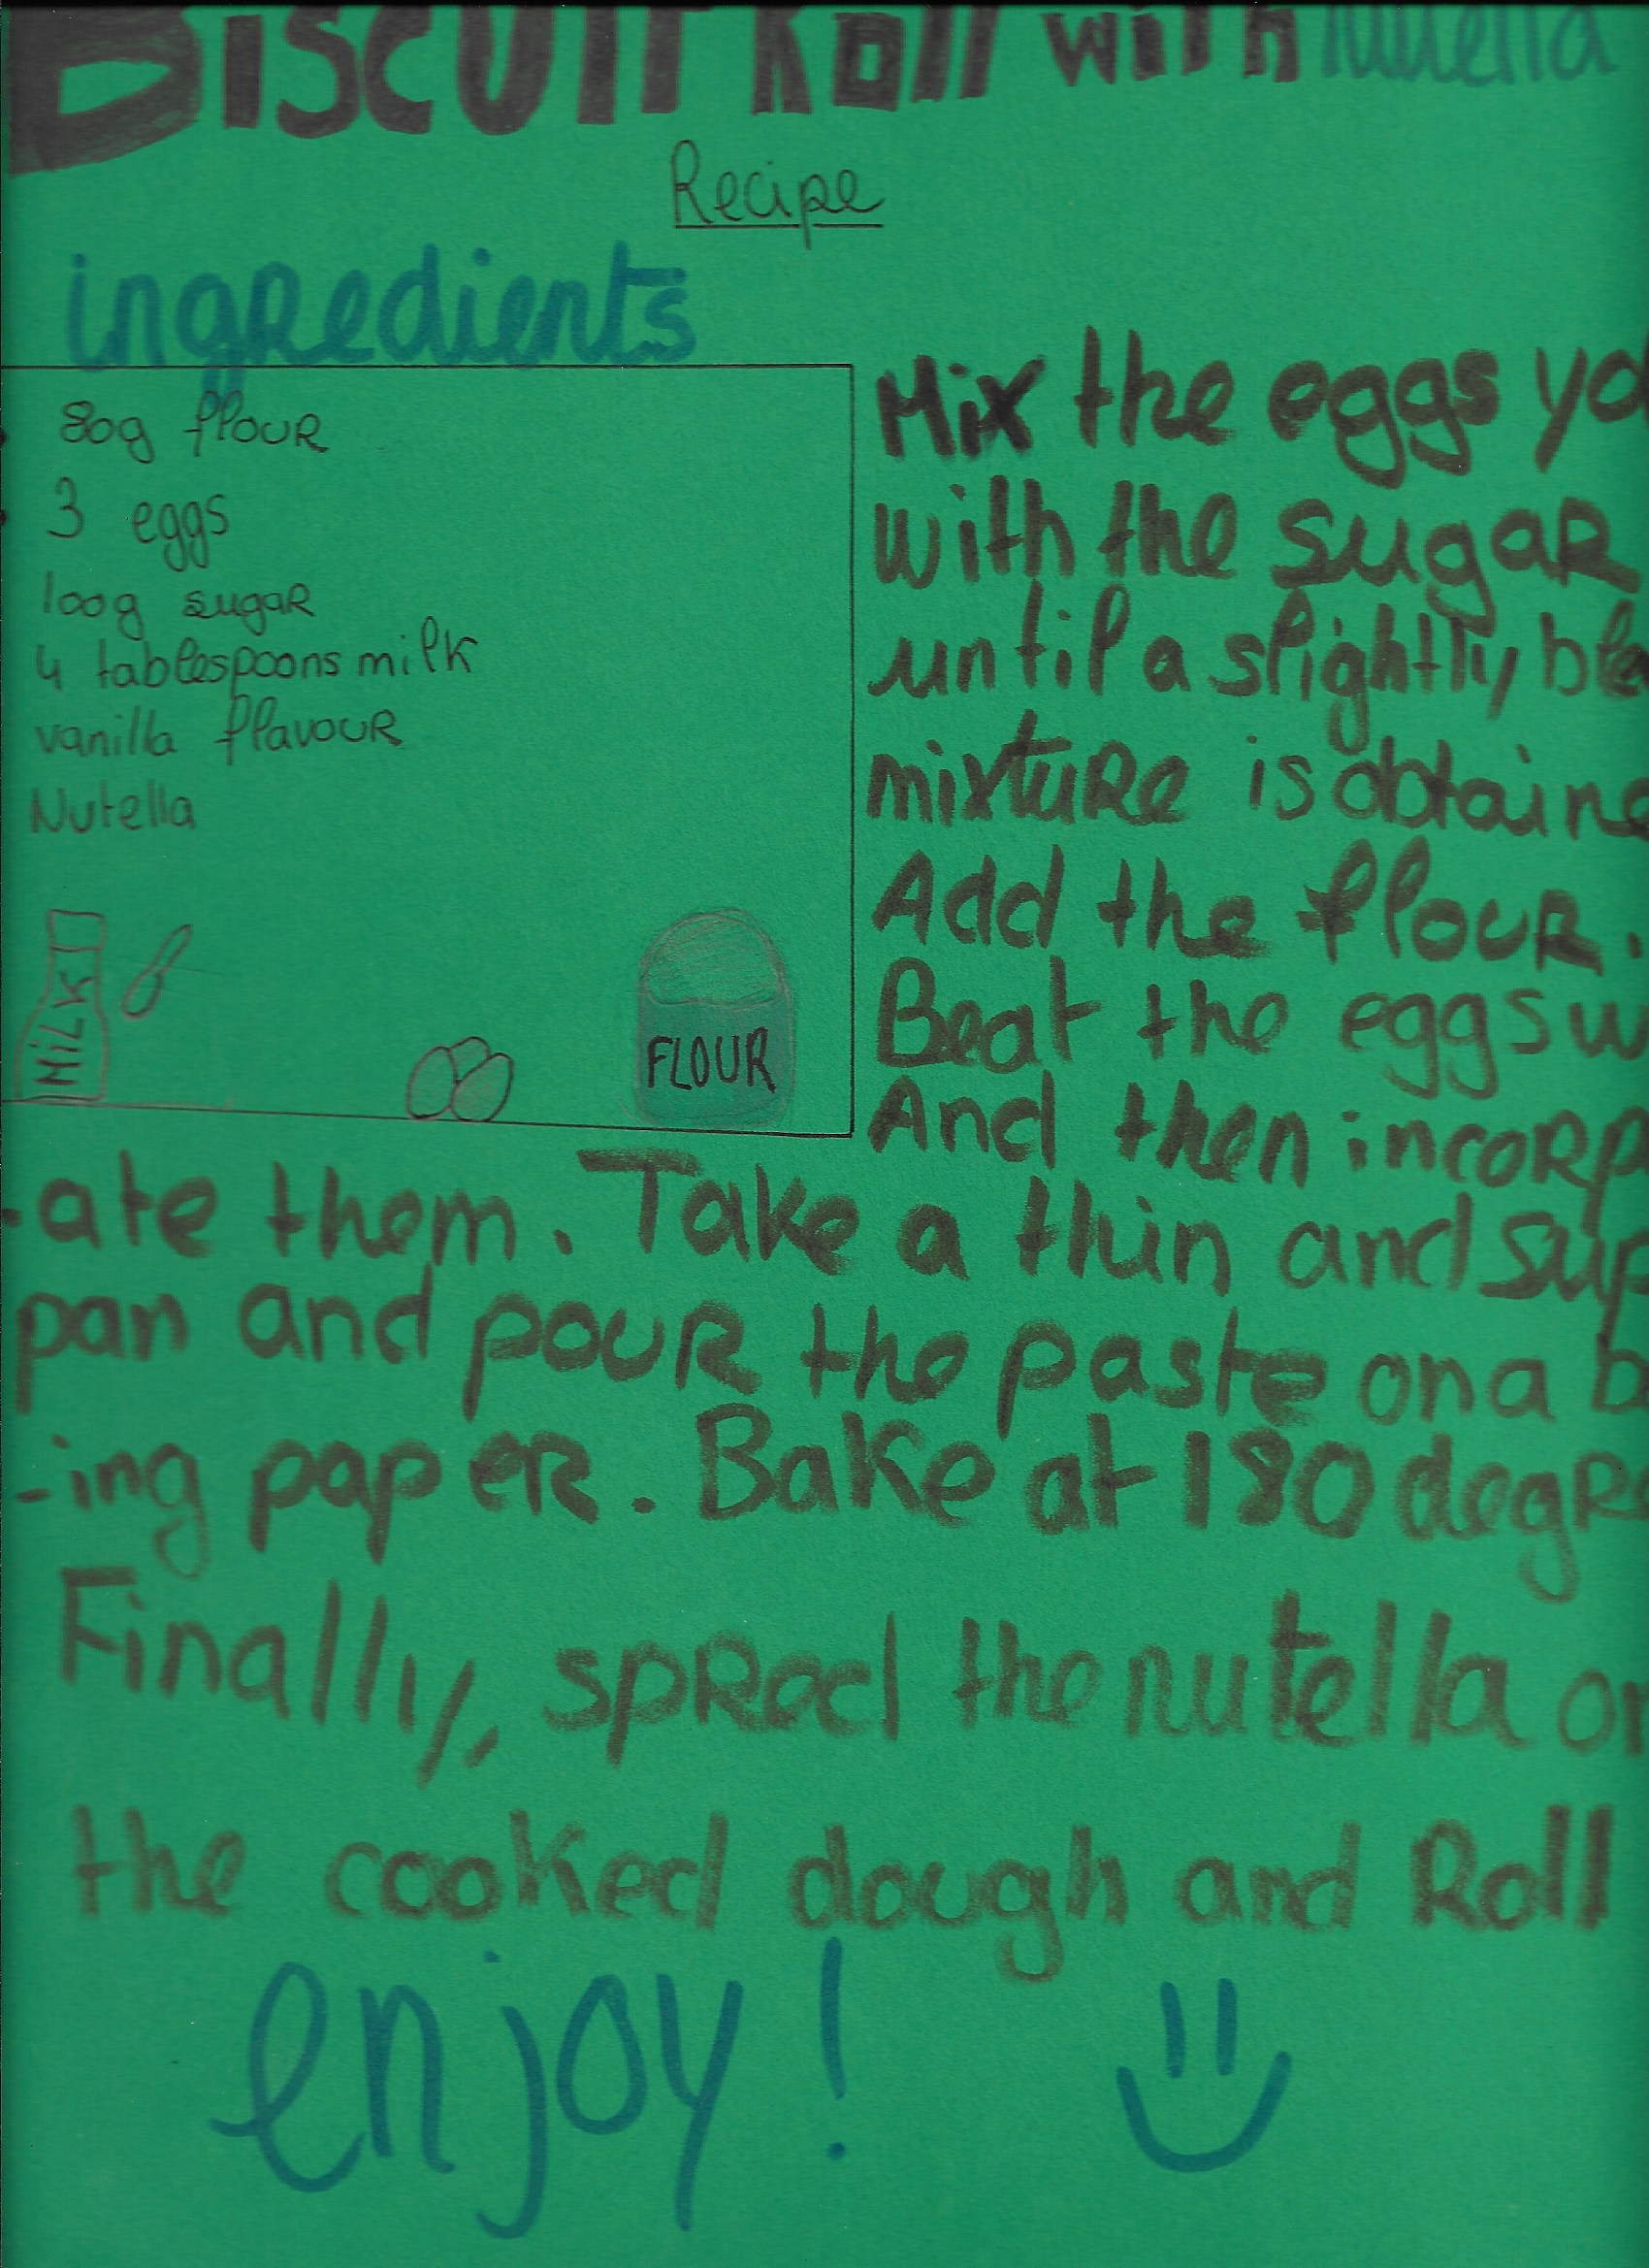 BISCUIT Roll with Nutella
Recipe
ingredients
80g flour
3 eggs
100g sugar
4 tablespoons milk
vanilla flavour
Nutella
MILK
FLOUR
Mix the eggs yo
with the sugar
until a slightly ble
mixture is obtaine
Add the flour.
Beat the eggs w
And then incorp
-ate them. Take a thin and sup
pan and pour the paste on a b
-ing paper. Bake at 180 degre
Finally, spred the nutella on
the cooked dough and Roll
enjoy!